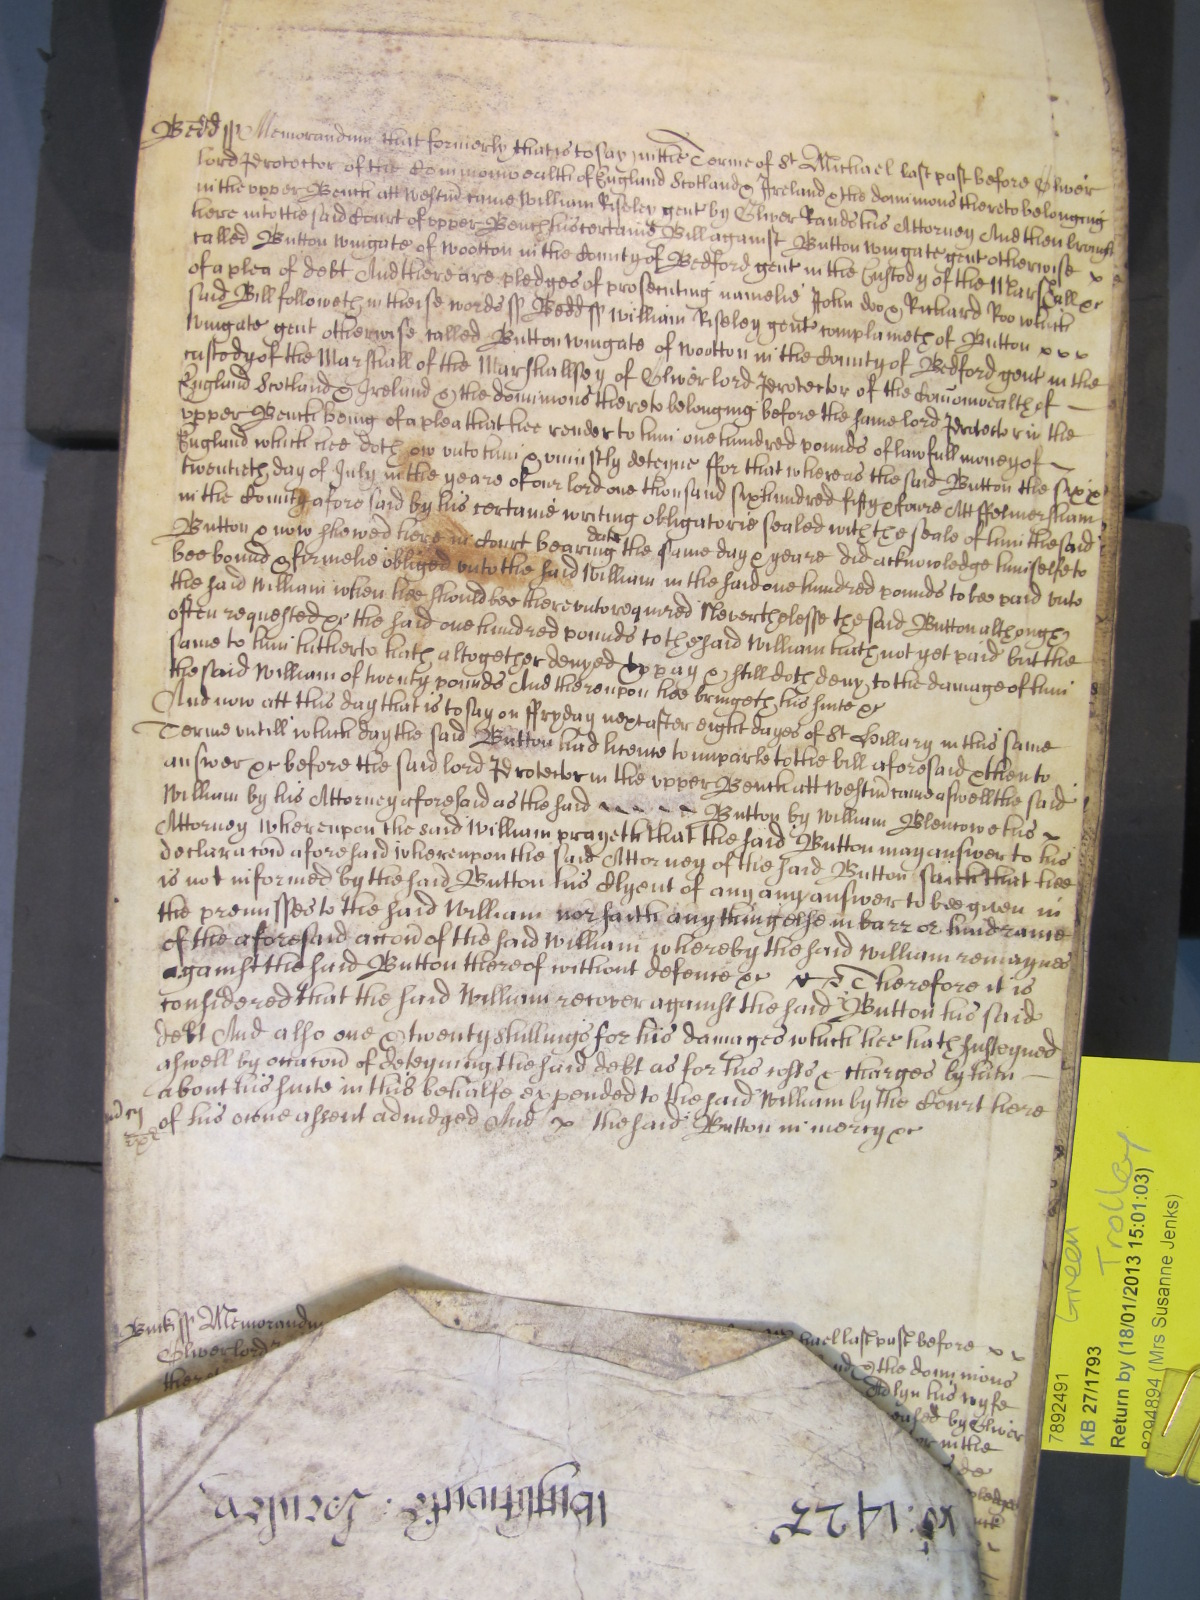 Bedd ss Memorandum that formerly that is to say in the Terme of St Michael last past before Oliver
lord Protector of the Commonwealth of England Scotland & Ireland & the dominions thereto belonging
in the vpper Bench att Westm came William Riseley gent by Oliver Rands his Attorney And then brought
here into the said Court of vpper Bench his certaine Bill against Button wingate gent otherwise
called Button wingate of wootton in the County of Bedford gent in the Custody of the Marshall &c
of a plea of debt And there are pledges of prosecuting namelie John doo & Richard Roo which
said Bill followeth in theise words ss Bedd ss William Riseley gent complaineth of Button
wingate gent otherwise called Button wingate of wootton in the County of Bedford gent in the
custody of the Marshall of the Marshallsey of Oliver lord Protector of the Comonwealth of
England Scotland & Ireland & the dominions thereto belonging before the same lord Protector in the
vpper Bench being of a plea that hee render to him one hundred pounds of lawfull money of
England which hee doth ow vnto him & vniustly deteyne ffor that whereas the said Button the six &
twentieth day of July in the yeare of our lord one thousand six hundred fifty & foure Att ffelmersham
in the County aforesaid by his certaine writing obligatorie sealed with the seale of him the said
Button & now shewed here in Court bearing date the same day & yeare did acknowledge himselfe to
bee bound & firmelie obliged vnto the said William in the said one hundred pounds to bee paid vnto
the said William when hee should bee therevnto required Neverthelesse the said Button although
often requested &c the said one hundred pounds to the said William hath not yet paid but the
same to him hitherto hath altogether denyed to pay & still doth deny to the damage of him
the said William of twenty pounds And therevpon hee bringeth his suite &c
And now att this day that is to say on ffryday next after eight dayes of St Hillary in this same
Terme vntill which day the said Button had licence to imparle to the bill aforesaid & then to
answer &c before the said lord Protector in the vpper Bench att Westm came aswell the said
William by his Attorney aforesaid as the said Button by William Blencowe his
Attorney wherevpon the said William prayeth that the said Button may answer to his
declaracon aforesaid wherevpon the said Attorney of the said Button saith that hee
is not informed by the said Button his Clyent of any any answer to bee given in
the premisses to the said William nor saith any thing else in barr or hindrance
of the aforesaid accon of the said William whereby the said William remaynes
against the said Button thereof without defence &c Therefore it is
considered that the said William recover against the said Button his said
debt And also one & twenty shillings for his damages which hee hath susteyned
aswell by occacon of deteyning the said debt as for his costs & charges by him
about his suite in this behalfe expended to the said William by the Court here
of his owne assent adiudged And the said Button in mercy &c
Buck ss Memorandm
hael last past before
Oliver lord
& the dominions
there
his wyfe
by Oliver
in the
1422
7892491
Green
Trolley
KB 27/1793
Return by (18/01/2013 15:01:03)
8294894 (Mrs Susanne Jenks)